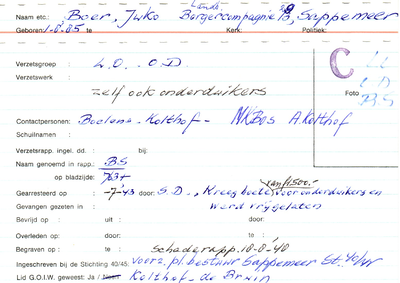 Naam etc.: Boer, Juko Borgercompagnie Sappemeer
Geboren: 1-8-85 te Kerk: Politiek:
C
Verzetsgroep : L.O. . O.D.
Verzetswerk :
zelf ook onderduikers
Foto
Contactpersonen: Boelens - Kolthof - NKBos A. Kolthof
Schuilnamen :
Verzetsrapp. ingel. dd. : bij:
Naam genoemd in rapp.: BS
op bladzijde: 763+
van fl.500.-
Gearresteerd op : -7-43 door: S.D., Kreeg boete voor onderduikers en
Gevangen gezeten in : werd vrijgelaten
Bevrijd op : uit : door:
Overleden op: : te : door:
Begraven op : te : schaderapp. 10-8-40
Ingeschreven bij de Stichting 40/45: voorz. pl. bestuur Sappemeer St. 40/45
Lid G.O.I.W. geweest: Ja / Neen Kolthof - de Bruin